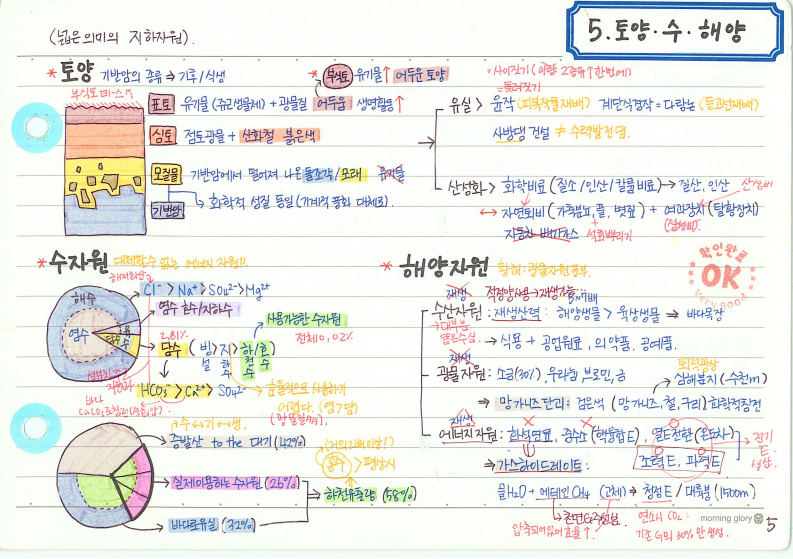 5. 토양·수·해양
(넓은의미의 지하자원).
* 토양 기반암의 종류 → 기후/식생
* 부식토 유기물↑ 어두운 토양
부식토
표토 유기물 + 광물질 어두움 생명활동↑
심토 점토광물 + 산화철 붉은색
모질물 기반암에서 떨어져 나온 돌조각/모래
기반암 → 화학적 성질 동일 (기계적 풍화 대체로).
유실 > 윤작 (피복작물재배) 계단식경작 = 다랑논 (등고선재배)
사방댐 건설 ≠ 수력발전댐.
산성화 > 화학비료 (질소/인산/칼륨비료) → 질산, 인산
산성비
↔ 자연퇴비 (가축분뇨, 풀, 볏짚) + 여과장치 (탈황장치)
자동차 배기가스 석회뿌리기
* 수자원 대체할수 없는 에너지 자원!!.
해수
염수
담수
Cl⁻ > Na⁺ > SO₄²⁻ > Mg²⁺
염수 호수/지하수
사용가능한 수자원
전체의 0.02%
2.81%
담수 (빙 > 지 > 하/호)
설 하 천 수
수 수
HCO₃⁻ > Ca²⁺ > SO₄²⁻
효율적으로 사용하기
어렵다.
바다
증발산 to the 대기 (42%)
실제이용하는수자원 (26%)
바다로유실 (32%)
하천유출량 (58%)
홍수 > 평상시
* 해양자원 황해: 광물자원 풍부.
재생
적정양사용→재생가능
수산자원 : 재생산력 : 해양생물 > 육상생물 ⇒ 바다목장
→ 식용 + 공업원료, 의약품, 공예품.
재생
광물자원 : 소금(30%), 우라늄, 브로민, 금
퇴적광상
심해분지 (수천m)
⇒ 망가니즈단괴 : 검은색 (망가니즈, 철, 구리) 화학적침전
재생
에너지자원 : 화석연료, 중수소 (핵융합E), 열도전환 (온도차)
조력E, 파력E
전기
E
생산.
⇒ 가스하이드레이트 :
물H₂O + 메테인 CH₄ (고체) ⇒ 청정E / 대륙붕 (1500m)
천연G주성분
압축되어있어 효율↑.
연소시 CO₂ :
기존 G의 30% 만 생성.
확인완료
OK
Very good
morning glory
5